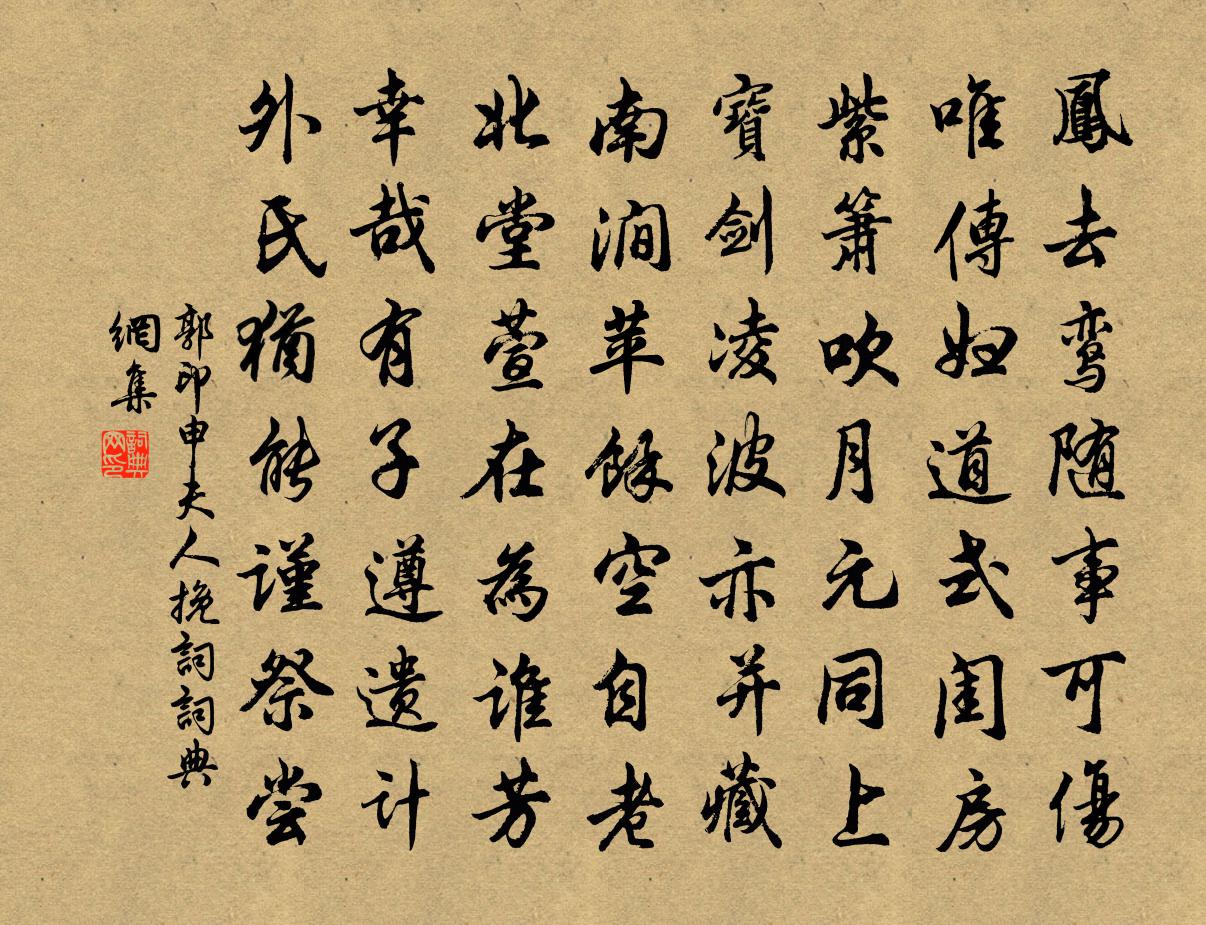 鳳去鸾随事可傷
唯傳妇道式闺房
紫箫吹月元同上
寶剑凌波亦并藏
南涧苹餘空自老
北堂萱在為谁芳
幸哉有子遵遗计
外氏猶能谨祭尝
郭印申夫人挽詞詞典
網集
詞典
网印